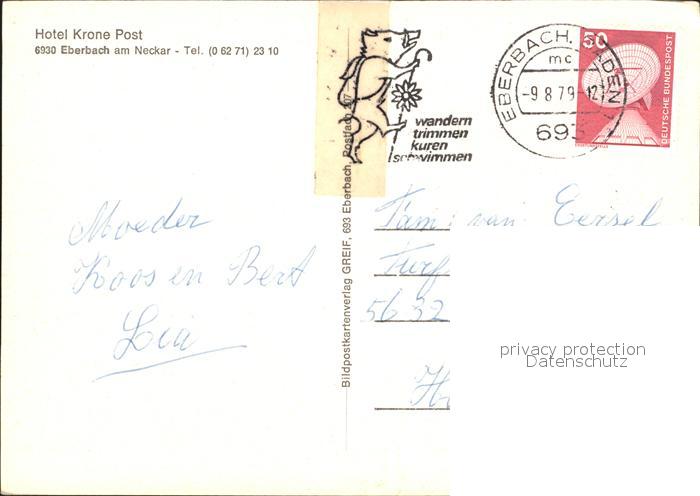 Hotel Krone Post
6930 Eberbach am Neckar - Tel. (0 62 71) 23 10
wandern
trimmen
kuren
schwimmen
EBERBACH, BADEN
mc
-9.8.79-12
693
50
DEUTSCHE BUNDESPOST
Bildpostkartenverlag GREIF, 693 Eberbach, Postfach 207
Moeder
Koos en Bert
Lia
Fam. van Eersel
Turf
5632
privacy protection
Datenschutz